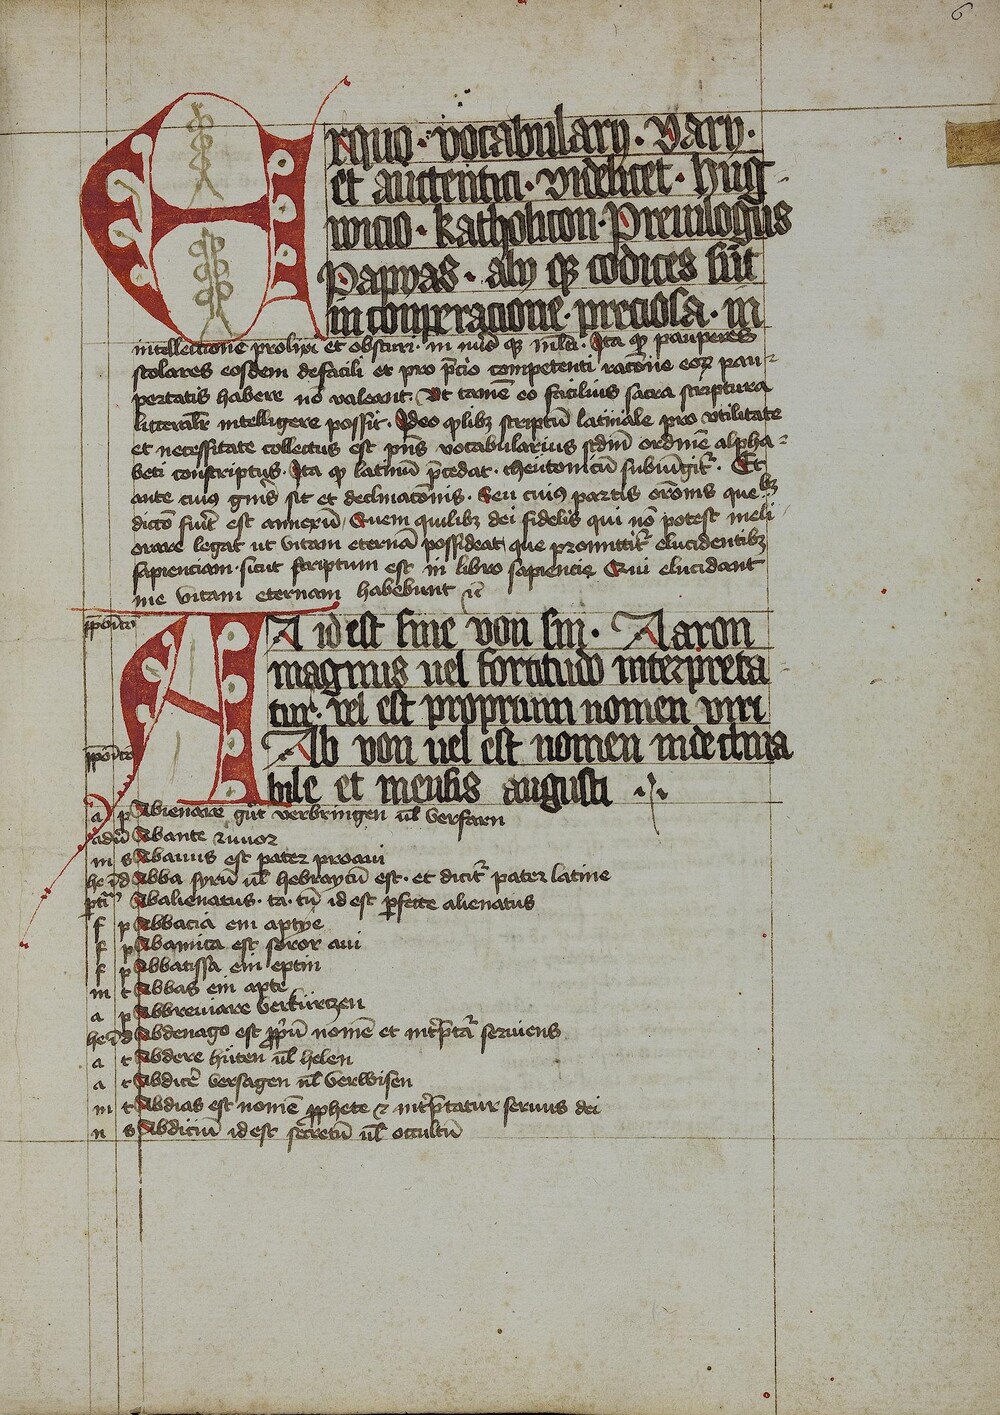 6
Erquo · vocabulary · vary ·
et auctentici · videlicet · hug
wicio · katholicon · Previlogus
Papyas · aly qz codices sūt
in comperacione · preciosa · in
intellectione prolixi et obscuri · in nūo qz mlti · Ita qp pauperes
scolares eosdem defacili et pro p̄cio competenti racōne eoꝝ pau
pertatis habere nō valeant · Ut tamē eo facilius sacra scriptura
litteralr̄ intelligere possit · Ideo qlibz scriptū latiniale pro utilitate
et necessitate collectus est pn̄s vocabularius scdm̄ ordinē alpha
beti conscriptus · Ita qp latinū p̄cedat · theutonicū subiūgitr̄ · Et
ante cuiꝯ gn̄is sit et declinacōnis · Seu cuiꝯ partis orōnis quebz
dicto fiūt est annexū / Quem quilibz dei fidelis qui nō potest meli
orare legat ut vitam eternā possideat que promittitr̄ elucidentibz
sapienciam · sicut scriptum est in libro sapiencie Qui elucidant
me vitam eternam habebunt
A id est sine von sin · Aaron
magnus uel fortitudo interpreta
tur · vel est proprium nomen viri
Ab von uel est nomen indeclina
bile et mensis augusti
a p Abienare gūt verbringen ul̄ verfarn
adū Abante zuuor
m s Abauus est pater proaui
he īd Abba syrū ul̄ hebraycū est · et dicitr̄ pater latine
Abalienatus · ta · tū id est p̄fecte alienatus
f p Abbacia ein aptye
f p Abamita est soror aui
f p Abbatissa ein eptin
m t Abbas ein apte
a p Abbreuiare verkürtzen
he īd Abdenago est ꝓpū nomē et int̄p̄tar̄ seruiens
a t Abdere hüten ul̄ helen
a t Abdicē versagen ul̄ verwisen
m t Abdias est nomē ꝓphete & int̄p̄tatur seruus dei
n s Abdicū id est secretū ul̄ occultū